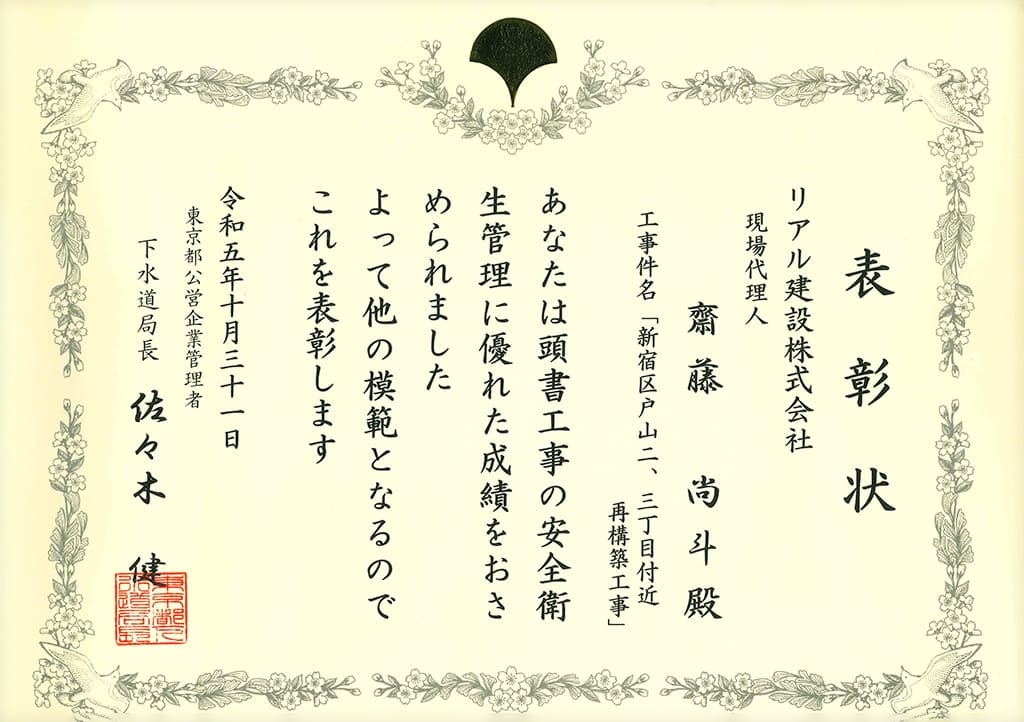 表彰状
リアル建設株式会社
現場代理人
齋藤 尚斗殿
工事件名「新宿区戸山二、三丁目付近
再構築工事」
あなたは頭書工事の安全衛
生管理に優れた成績をおさ
められました
よって他の模範となるので
これを表彰します
令和五年十月三十一日
東京都公営企業管理者
下水道局長 佐々木 健